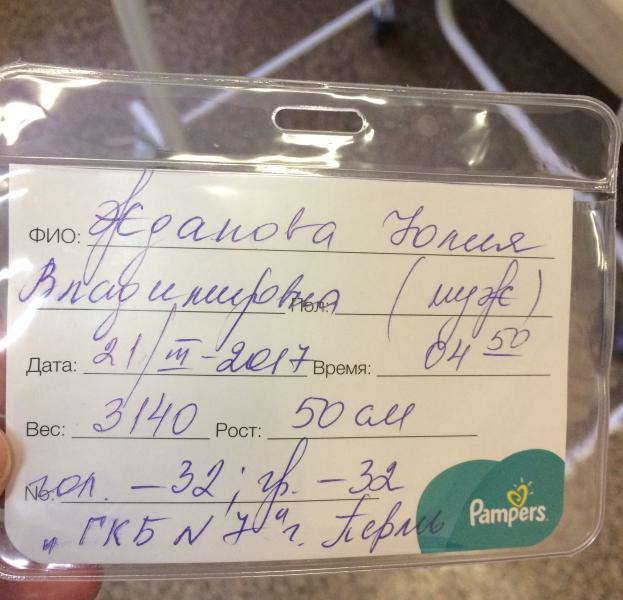 ФИО: Жданова Юлия
Владимировна Пол: (муж)
Дата: 21/III-2017 Время: 04 50
Вес: 3140 Рост: 50 см
No: гол. – 32; гр. – 32
" ГКБ N 7" г. Пермь
Pampers